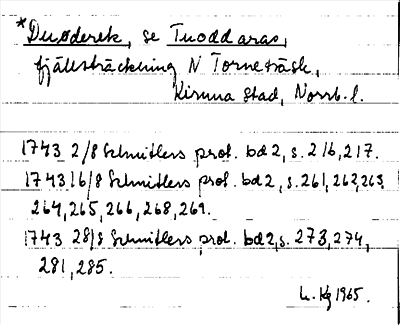 *Duøderek, se Tuoddaras,
fjällsträckning N Torneträsk,
Kiruna stad, Norrb. l.
1743 2/8 Schnitlers prot. bd 2, s. 216, 217.
1743 16/8 Schnitlers prot. bd 2, s. 261, 262, 263,
264, 265, 266, 268, 269.
1743 28/8 Schnitlers prot. bd 2, s. 273, 274,
281, 285.
1965.